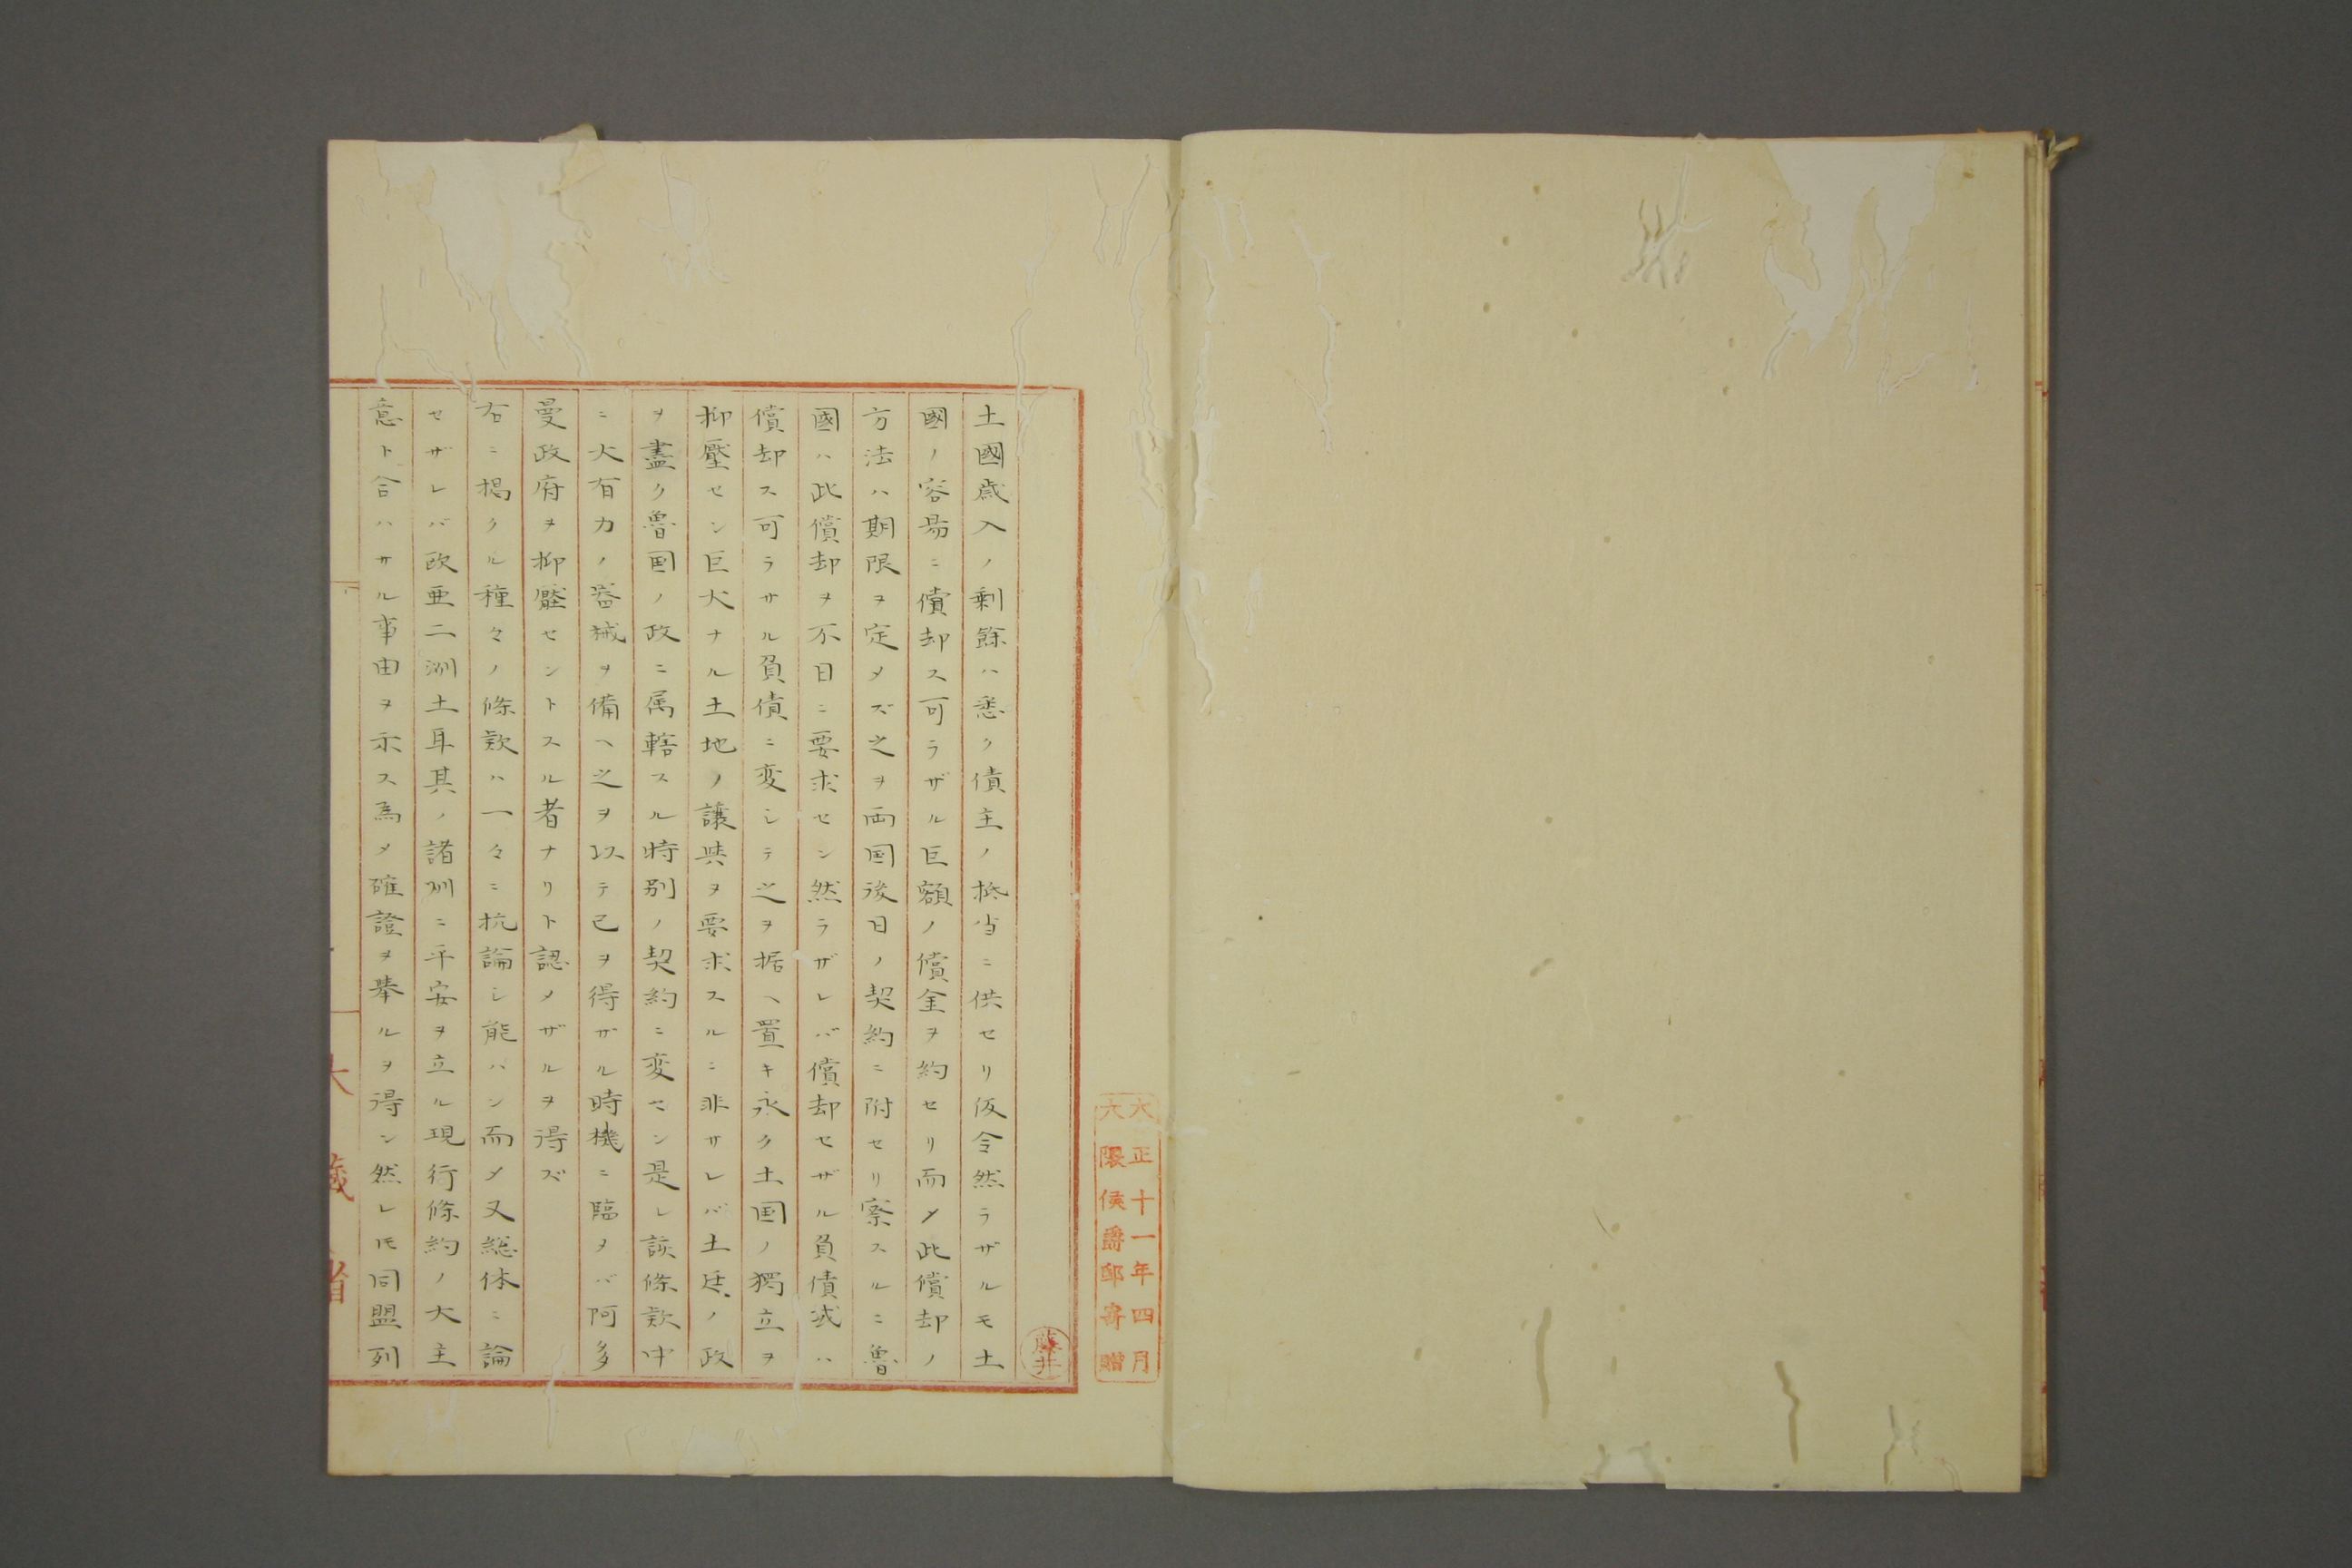 大正十一年四月
大隈侯爵邸寄贈
藤井
土國歳入ノ剰餘ハ悉ク債主ノ抵当ニ供セリ仮令然ラザルモ土
國ノ容昜ニ償却ス可ラザル巨額ノ償金ヲ約セリ而メ此償却ノ
方法ハ期限ヲ定メズ之ヲ両国後日ノ契約ニ附セリ察スルニ魯
國ハ此償却ヲ不日ニ要求セン然ラザレバ償却セザル負債或ハ
償却ス可ラサル負債ニ変シテ之ヲ据ヘ置キ永ク土国ノ獨立ヲ
抑壓セン巨大ナル土地ノ讓與ヲ要求スルニ非サレバ土廷ノ政
ヲ盡ク魯国ノ政ニ属轄スル特別ノ契約ニ変セン是レ該條款中
ニ大有力ノ器械ヲ備ヘ之ヲ以テ己ヲ得ザル時機ニ臨メバ阿多
曼政府ヲ抑壓セントスル者ナリト認メザルヲ得ズ
右ニ掲クル種々ノ條款ハ一々ニ抗論シ能ハン而メ又総体ニ論
セザレバ欧亜二洲土耳其ノ諸州ニ平安ヲ立ル現行條約ノ大主
意ト合ハサル事由ヲ示ス為メ確證ヲ舉ルヲ得ン然レ𪜈同盟列
大藏省